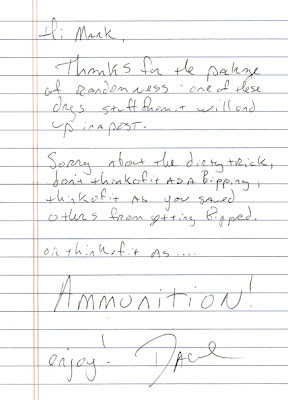 Hi Mark,
Thanks for the package
of randomness - one of these
days stuff from it will end
up in a post.
Sorry about the dirty trick,
don't think of it as a Bipping,
think of it as you saved
others from getting Bipped.
or think of it as....
Ammunition!
enjoy! Dave